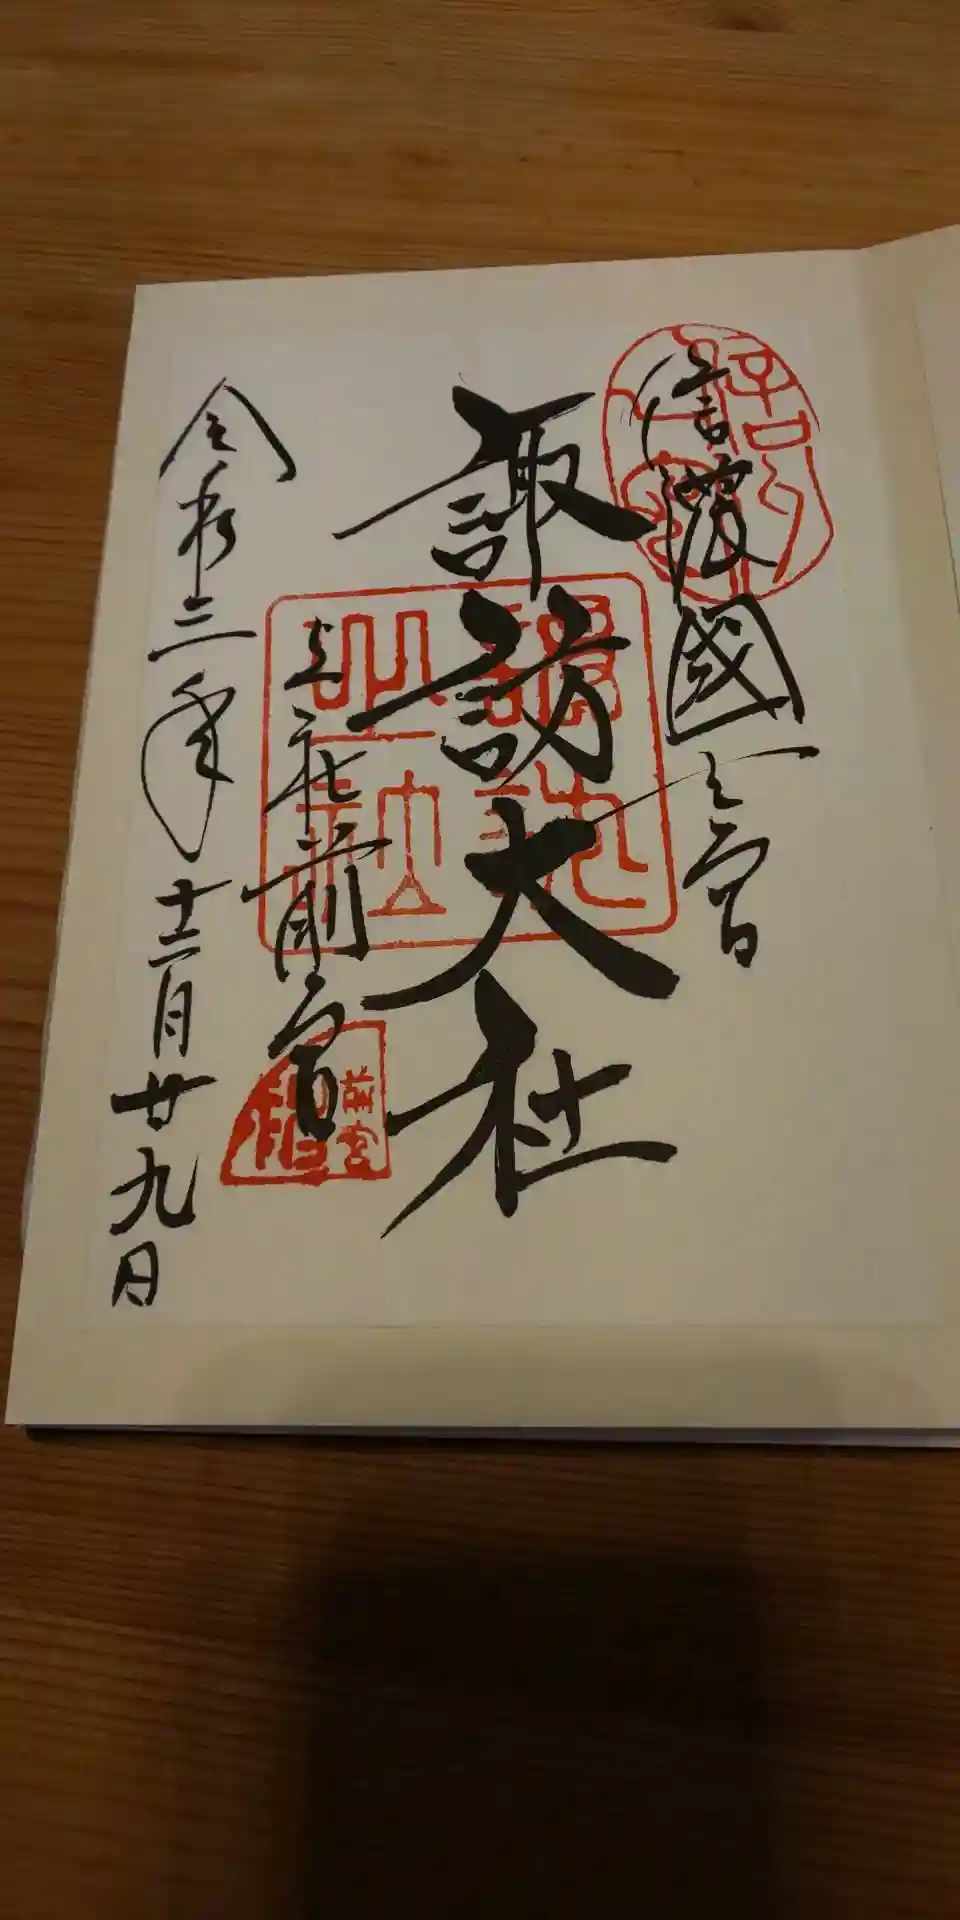 信濃國一宮
諏訪大社
上社前宮
令和三年十二月廿九日
前宮